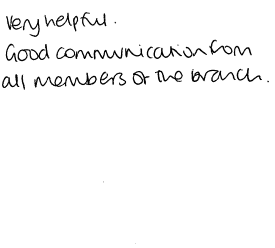 Very helpful.
Good communication from
all members of the branch.